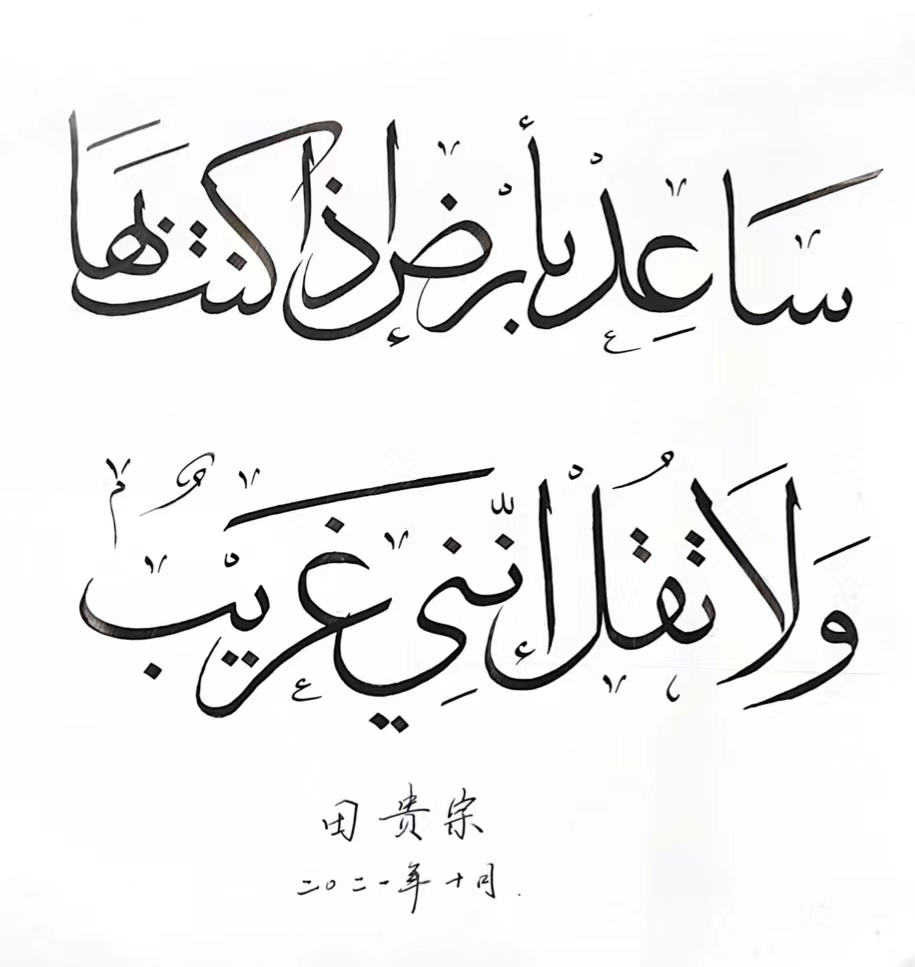 سَاعِدْ بأَرْضٍ إذَا كنتَ بهَا
وَلَا تقُلْ إنّني غَريْبٌ
田贵宗
二〇二一年十月.